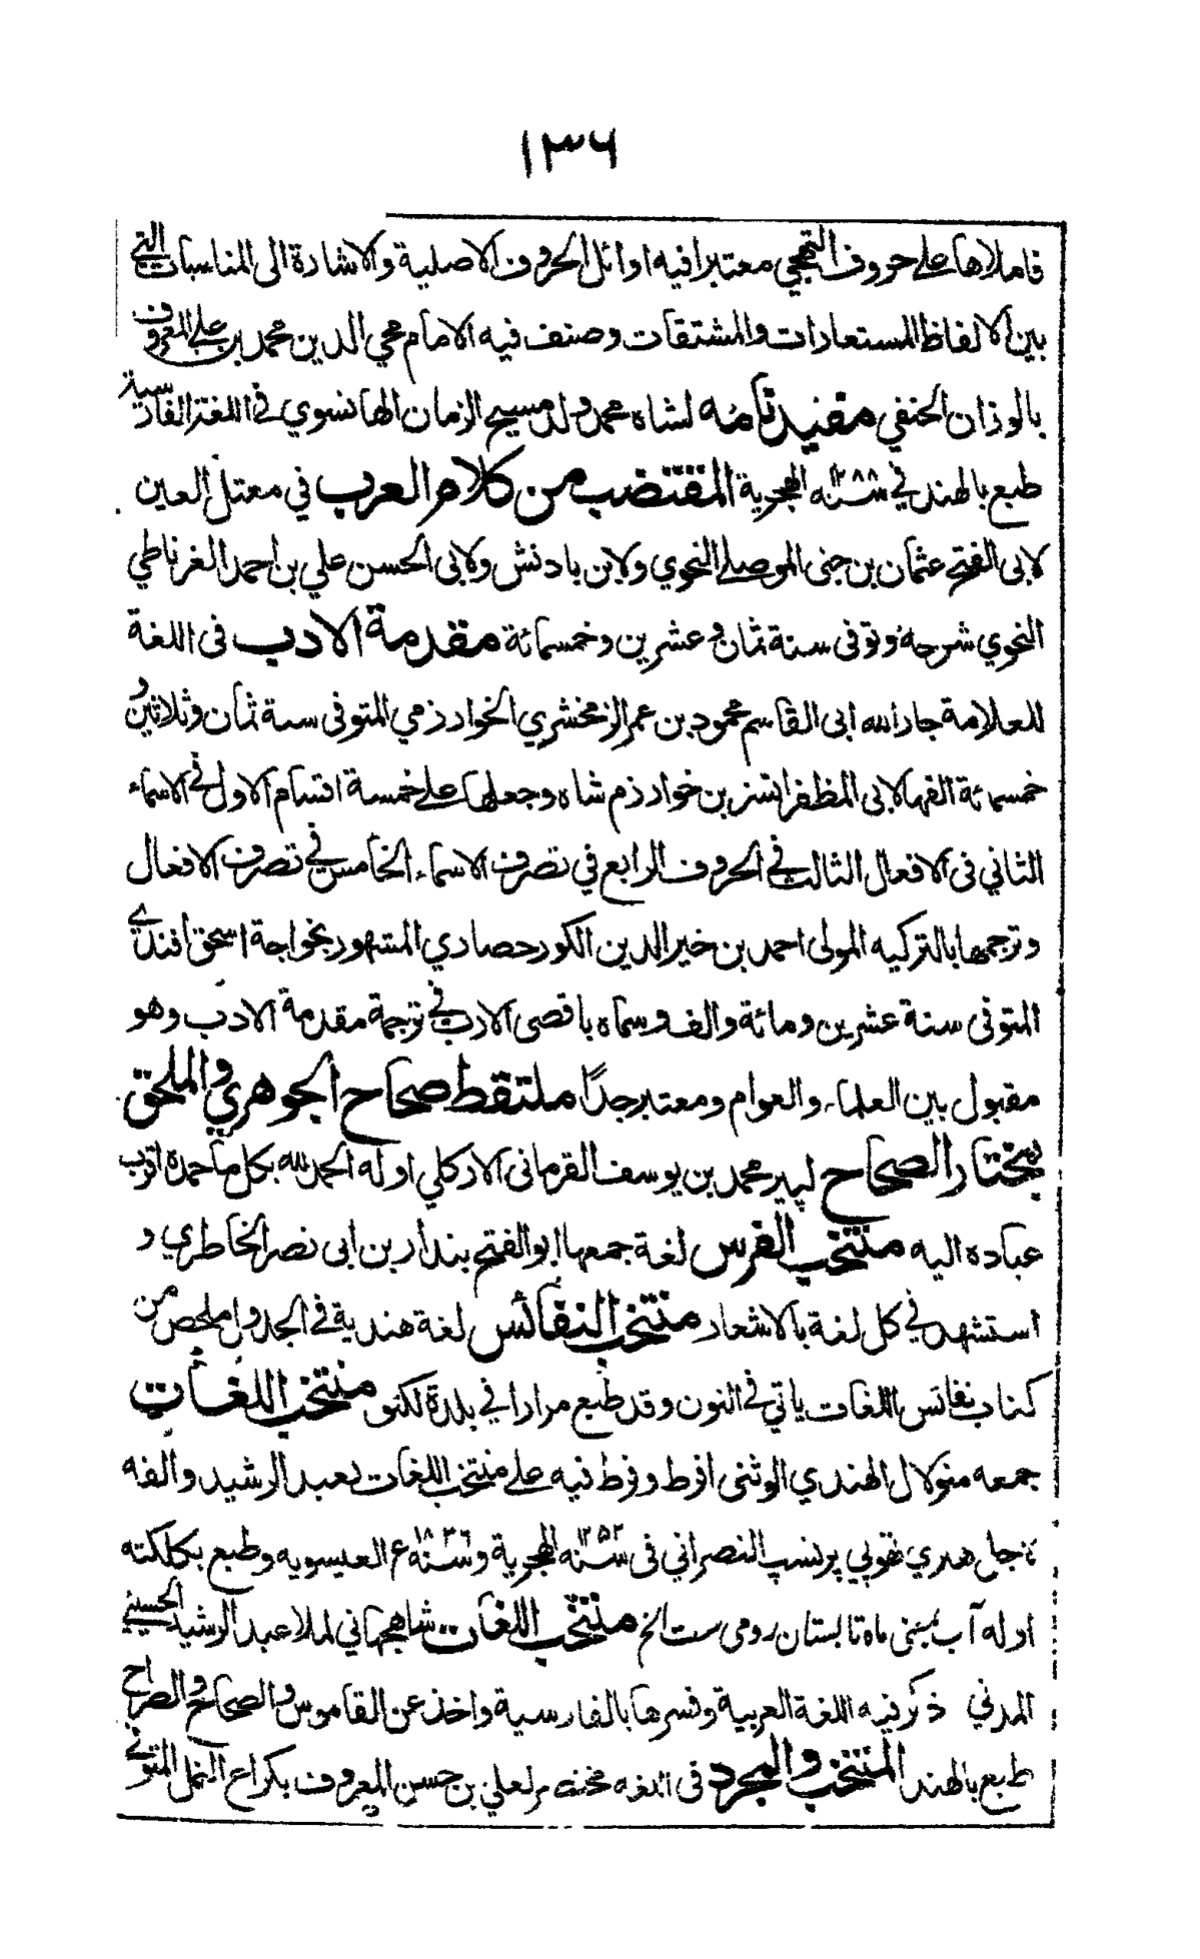 ١٣٦
فاملاها على حروف التهجي معتبرا فيه اوائل الحروف الاصلية والاشارة الى المناسبات التي
بين الالفاظ المستعارات والمشتقات وصنف فيه الامام محي الدين محمد بن علي المعروف
بالوزان الحنفي مفيد نامه لشاه محمد ولد مسيح الزمان الهانسوي في اللغة الفارسية
طبع بالهند في سنه ١٢٨٨ الهجرية المقتضب من كلام العرب في معتل العين
لابى الفتح عثمان بن جنى الموصلي النحوي ولابن بادنش ولابى الحسن علي بن احمد الغرناطي
النحوي شرحه وتوفى سنة ثمان وعشرين وخمسمائة مقدمة الادب فى اللغة
للعلامة جار الله ابى القاسم محمود بن عمر الزمخشري الخوارزمي المتوفى سنة ثمان وثلاثين و
خمسمائة الفها لابى المظفر اتسز بن خوارزم شاه وجعلها على خمسة اقسام الاول في الاسماء
الثاني فى الافعال الثالث في الحروف الرابع في تصرف الاسماء الخامس في تصرف الافعال
وترجمها بالتركيه المولى احمد بن خير الدين الكورحصاري المشهور بخواجة اسحق افندي
المتوفى سنة عشرين ومائة والف وسماه باقصى الارب في ترجمة مقدمة الادب وهو
مقبول بين العلماء والعوام ومعتبر جدًا ملتقط صحاح الجوهري والملحق
بمختار الصحاح لپير محمد بن يوسف القرمانى الاركلي اوله الحمد لله بكل ما حمده اقرب
عباده اليه منتخب الفرس لغة جمعها ابو الفتح بندار بن ابى نصر الخاطري و
استشهد في كل لغة بالاشعار منتخب النفائس لغة هندية في الجدول ملخص من
كتاب نفائس اللغات ياتي في النون وقد طبع مرارا في بلدة لكنو منتخب اللغات
جمعه منولال الهندي الوثنى افرط وفرط فيه على منتخب اللغات لعبد الرشيد والفه
جل هنري تهوبي پرنسپ النصراني فى سنه ١٢٥٢ الهجرية وسنه ١٨٣٦ع العيسويه وطبع بكلكته
اوله آب بمعنى ماه تابستان رومى ست الخ منتخب اللغات شاهجهاني لملا عبد الرشيد الحسيني
المدني ذكر فيه اللغة العربية وفسرها بالفارسية واخذ عن القاموس والصحاح والصراح
طبع بالهند المنتخب والمجرد فى اللغه مختصر لعلي بن حسن المعروف بكراع النمل المتوفى